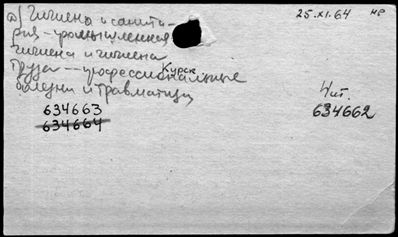 а) Гигиена и санита- 25.XI.64 нр
рия - промышленная
гигиена и гигиена
труда -- профессиональные
Курск
болезни и травматизм
Чит.
634663 634662
634664